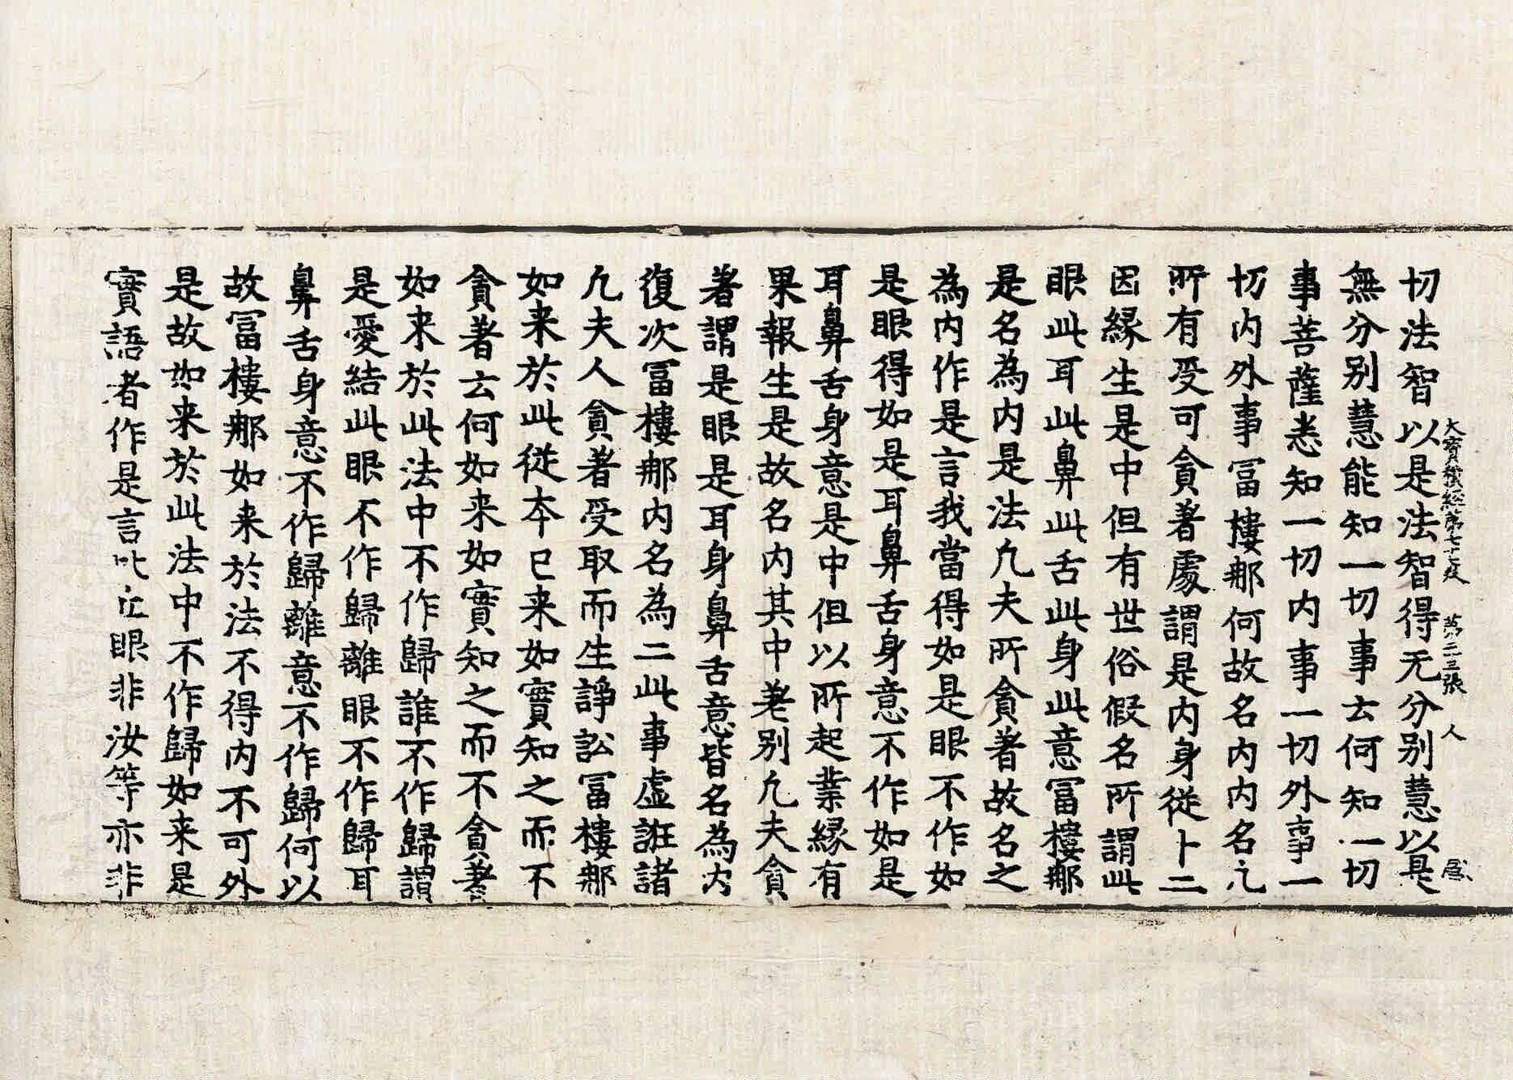 大寶積經第七十七卷 第二三張 人
切法智以是法智得无分别慧以是
無分别慧能知一切事去何知一切
事菩薩悉知一切内事一切外事一
切内外事冨樓那何故名内内名凢
所有受可貪著處謂是内身從卜二
因縁生是中但有世俗假名所謂此
眼此耳此鼻此舌此身此意冨樓那
是名為内是法凢夫所貪著故名之
為内作是言我當得如是眼不作如
是眼得如是耳鼻舌身意不作如是
耳鼻舌身意是中但以所起業縁有
果報生是故名内其中差别凢夫貪
著謂是眼是耳身鼻舌意皆名為内
復次冨樓那内名為二此事虛誑諸
凢夫人貪著受取而生諍訟冨樓那
如来於此從本已来如實知之而不
貪著去何如来如實知之而不貪著
如来於此法中不作歸誰不作歸謂
是愛結此眼不作歸離眼不作歸耳
鼻舌身意不作歸離意不作歸何以
故冨樓那如来於法不得内不可外
是故如来於此法中不作歸如来是
實語者作是言比丘眼非汝等亦非